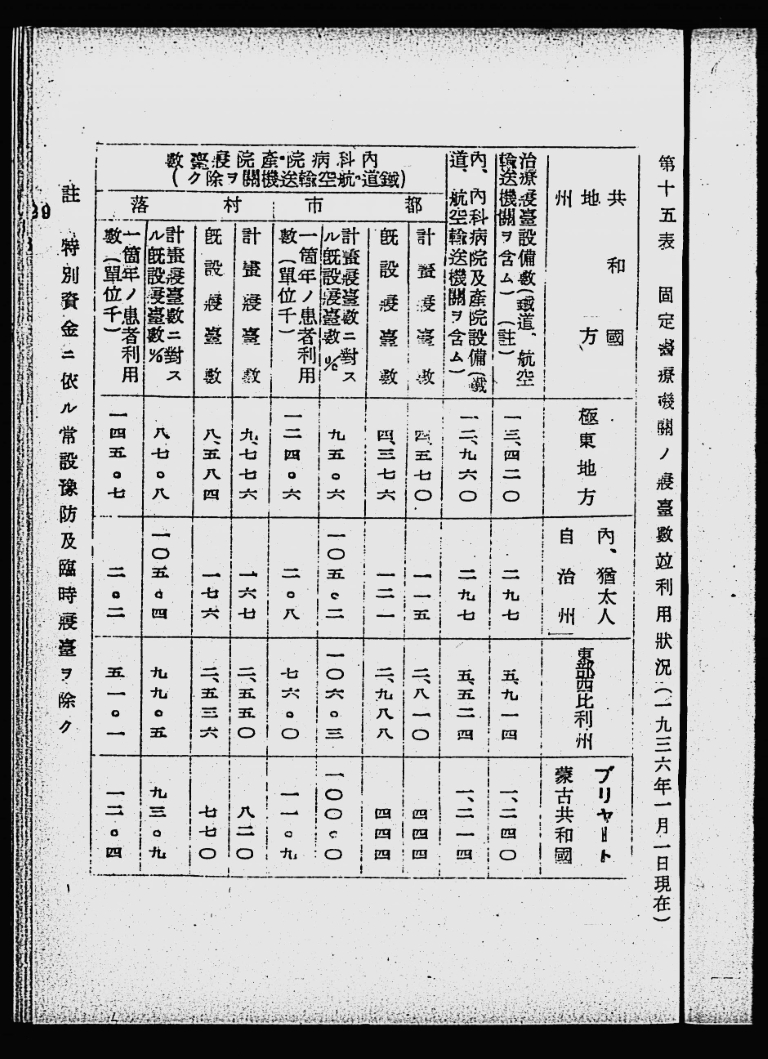 第十五表　固定醫療機關ノ寢臺數竝利用狀況（一九三六年一月一日現在）
共和國
地方
州
極東地方
內、猶太人
自治州
東部西比利州
ブリヤート
蒙古共和國
治療寢臺設備數（鐵道、航空
輸送機關ヲ含ム）（註）
一三、四二〇
二九七
五、九一四
一、二四〇
內、內科病院及產院設備（鐵
道、航空輸送機關ヲ含ム）
一二、九六〇
二九七
五、五二四
一、二一四
內科病院・產院寢臺
數（鐵道・航空輸送機關ヲ除ク）
都市
計畫寢臺數
四、五七〇
一一五
二、八一〇
四四四
既設寢臺數
四、三七六
一二一
二、九八八
四四四
計畫寢臺數ニ對ス
ル既設寢臺數％
九五。六
一〇五。二
一〇六。三
一〇〇。〇
一箇年ノ患者利用
數（單位千）
一二四。六
二。八
七六。〇
一一。九
村落
計畫寢臺數
九、七七六
一六七
二、五五〇
八二〇
既設寢臺數
八、五八四
一七六
二、五三六
七七〇
計畫寢臺數ニ對ス
ル既設寢臺數％
八七。八
一〇五。四
九九。五
九三。九
一箇年ノ患者利用
數（單位千）
一四五。七
二。二
五一。一
一二。四
註　特別資金ニ依ル常設豫防及臨時寢臺ヲ除ク